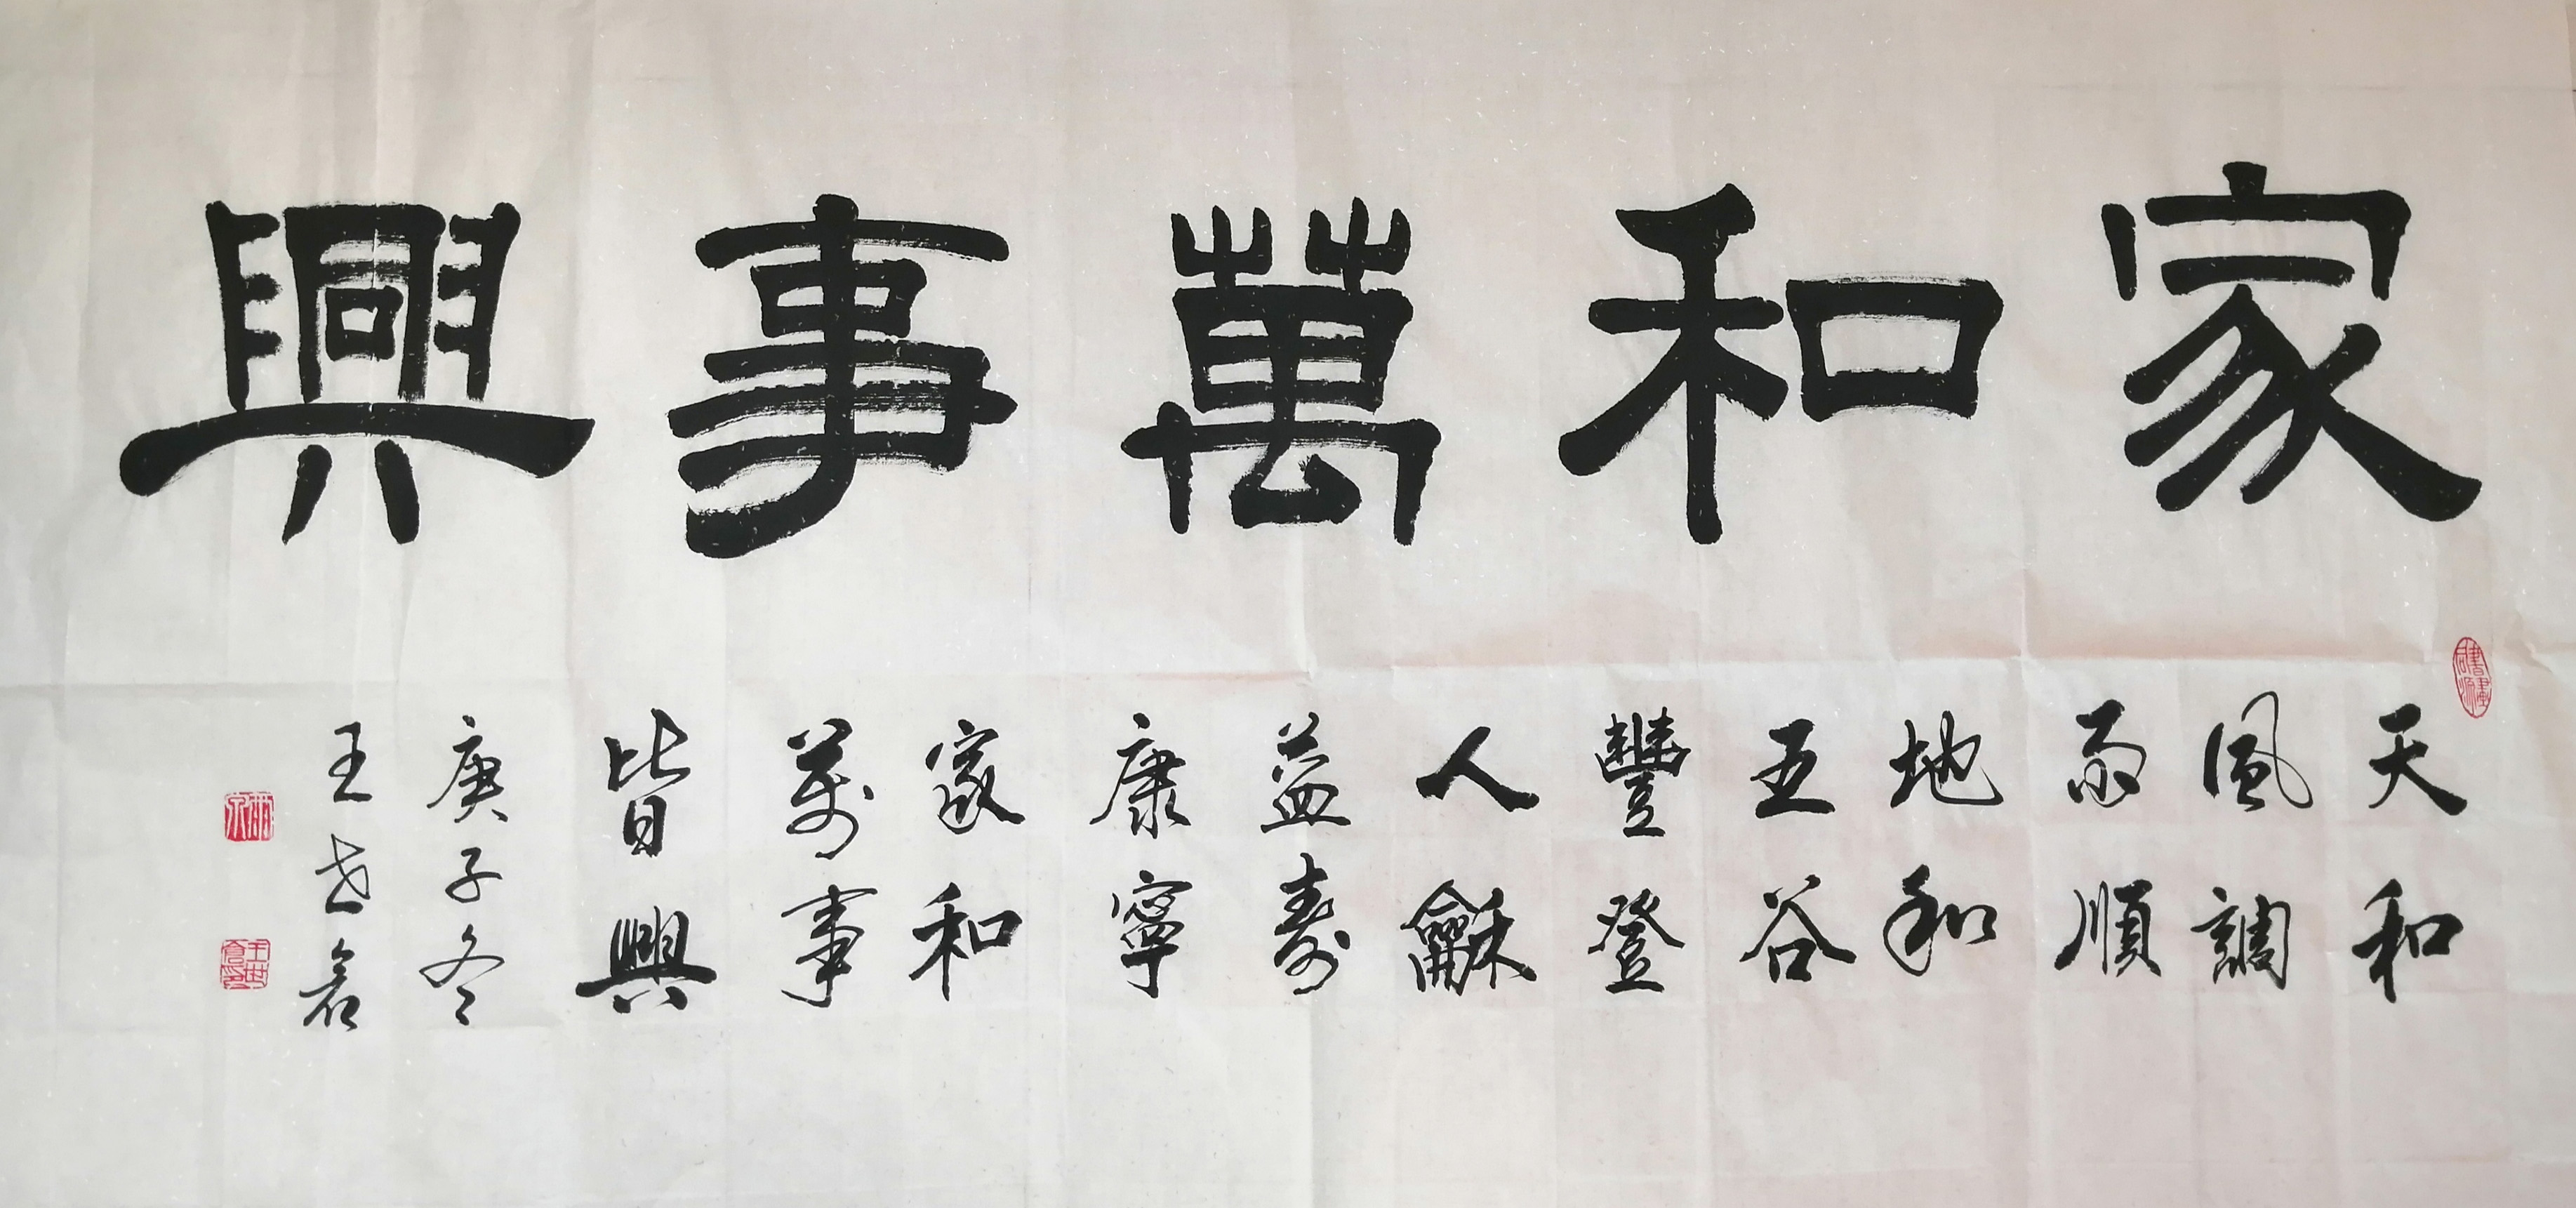 家和萬事興
天和
風調
雨順
地和
五谷
豐登
人龢
益壽
康寧
家和
萬事
皆興
庚子冬
王世